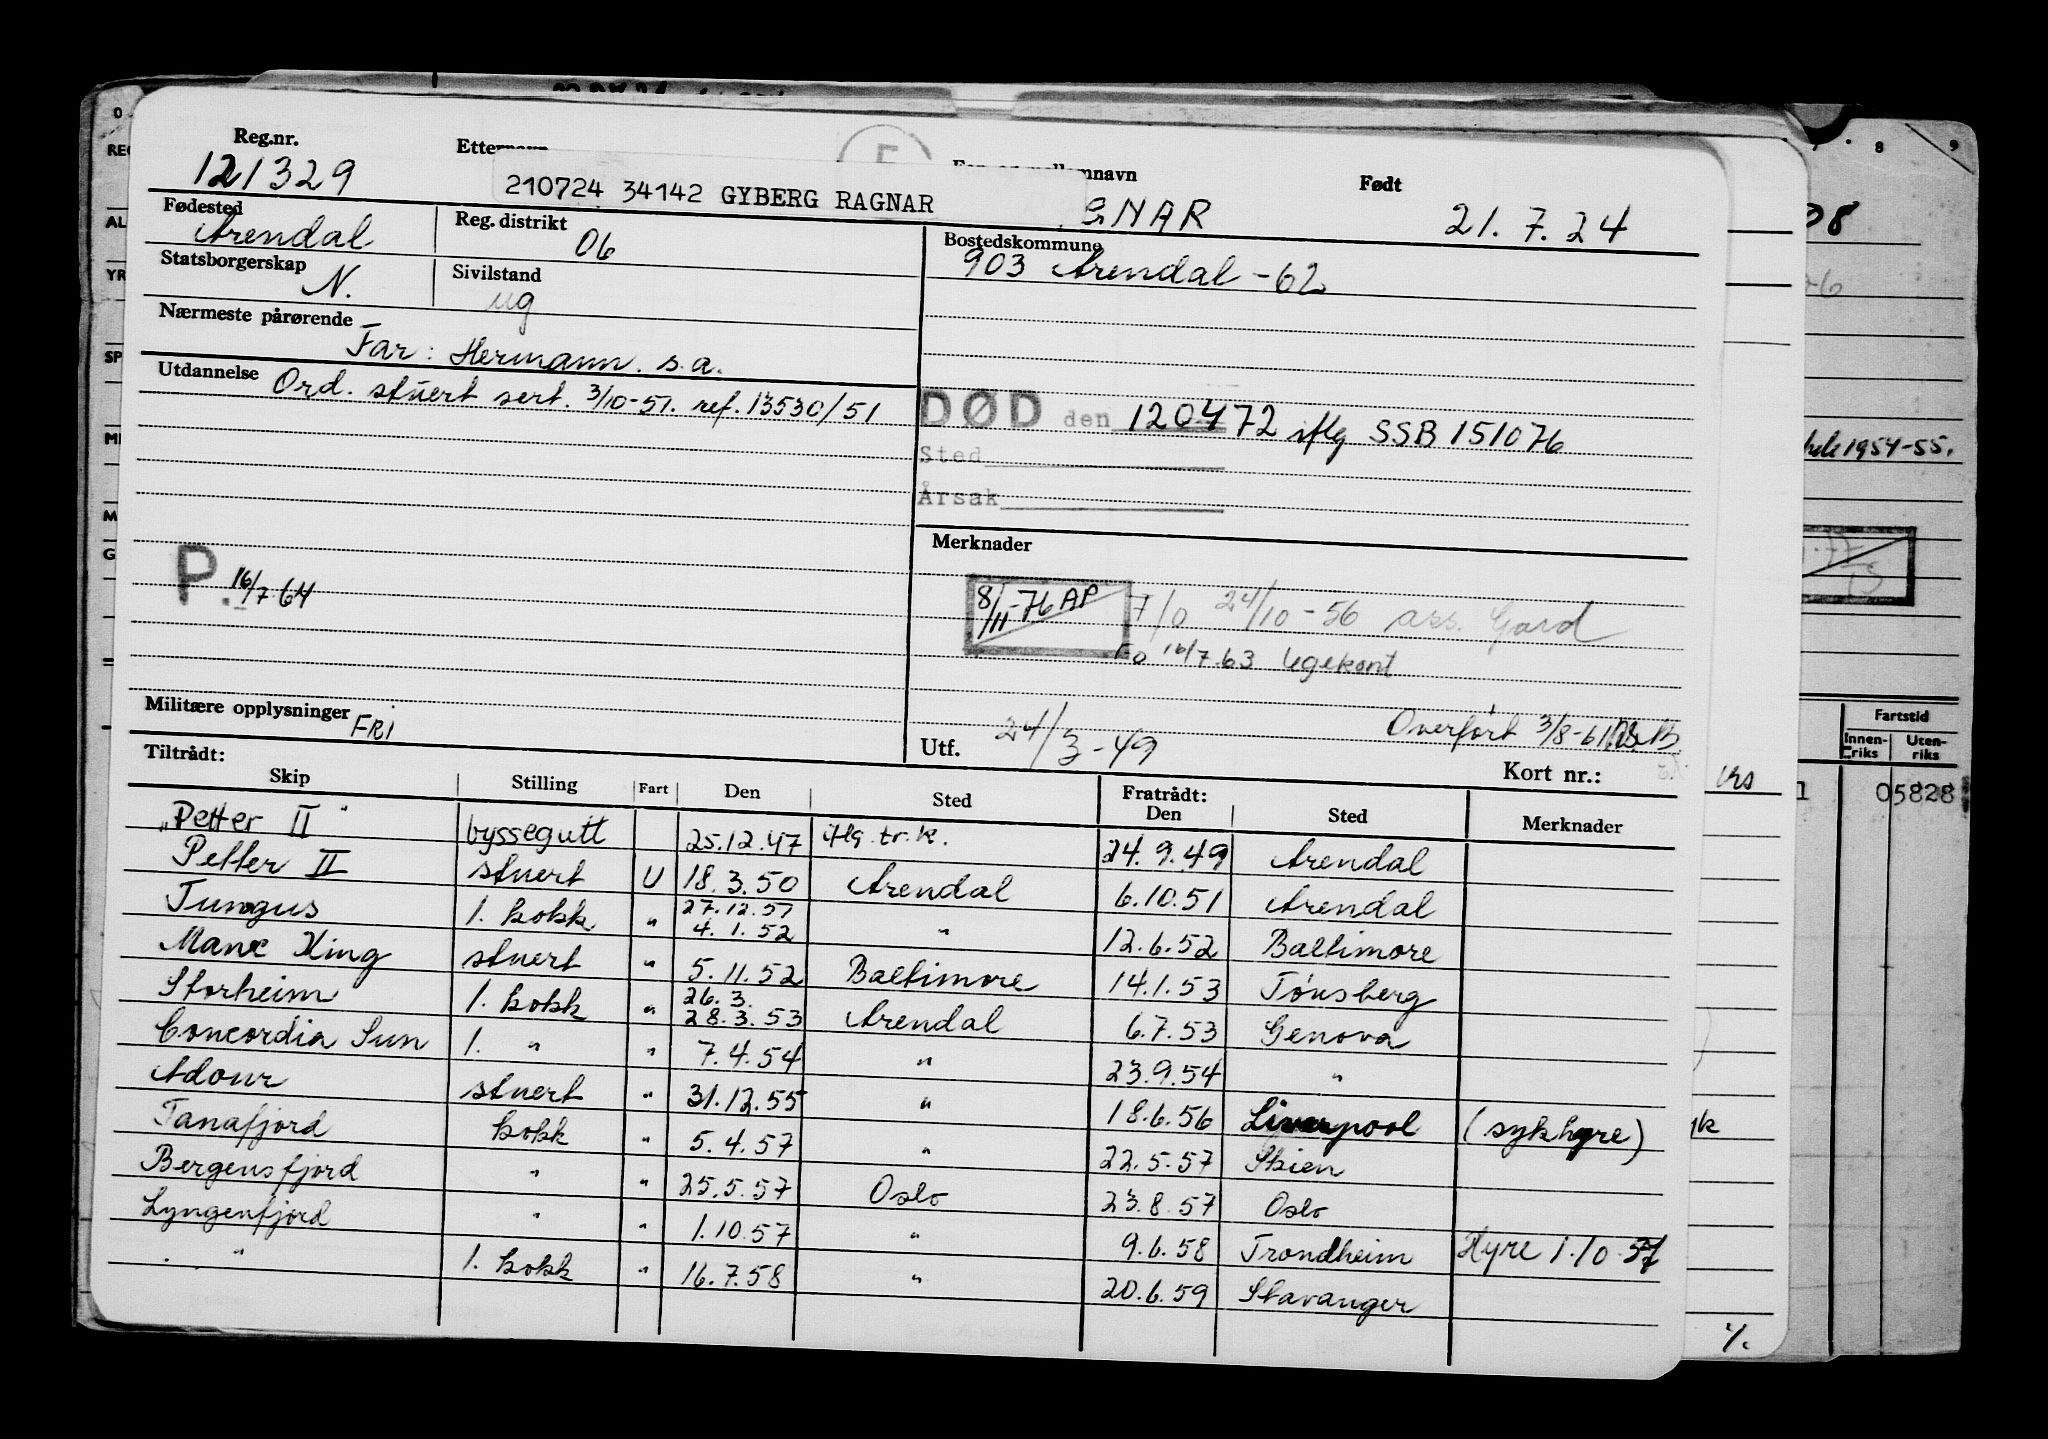 Reg.nr.
121329
Etternavn
210724 34142 GYBERG RAGNAR
mnavn
GNAR
Født
21.7.24
Fødested
Arendal
Reg. distrikt
06
Bostedskommune
903 Arendal - 62
Statsborgerskap
N.
Sivilstand
ug
Nærmeste pårørende
Far: Hermann. s.a.
Utdannelse Ord. stuert sert. 3/10-51. ref. 13530/51
DØD den 120472 iflg SSB 151076
Sted
Årsak
Merknader
P. 16/7 64
8/11-76 AP
F/O 24/10-56 ass. Gard
Fo 16/7.63 legekont
Militære opplysninger FRI
Utf. 24/3-49
Overført 3/8-61
Kort nr.:
Tiltrådt:
Skip Stilling Fart Den Sted Fratrådt: Den Sted Merknader
"Petter II" byssegutt 25.12.47 iflg. tr.k. 24.9.49 Arendal
Petter II stuert U 18.3.50 Arendal 6.10.51 Arendal
Tungus 1. kokk " 27.12.51 4.1.52 " 12.6.52 Baltimore
Mane King stuert " 5.11.52 Baltimore 14.1.53 Tønsberg
Storheim 1. kokk " 26.3. 28.3.53 Arendal 6.7.53 Genova
Concordia Sun 1. " " 7.4.54 " 23.9.54 "
Adour stuert " 31.12.55 " 18.6.56 Liverpool (sykhyre)
Tanafjord kokk " 5.4.57 " 22.5.57 Skien
Bergensfjord " " 25.5.57 Oslo 23.8.57 Oslo
Lyngenfjord " " 1.10.57 " 9.6.58 Trondheim Hyre 1.10.57
" 1. kokk " 16.7.58 " 20.6.59 Stavanger
8 9
1954-55.
Fartstid
Innenriks Utenriks
05828
%.